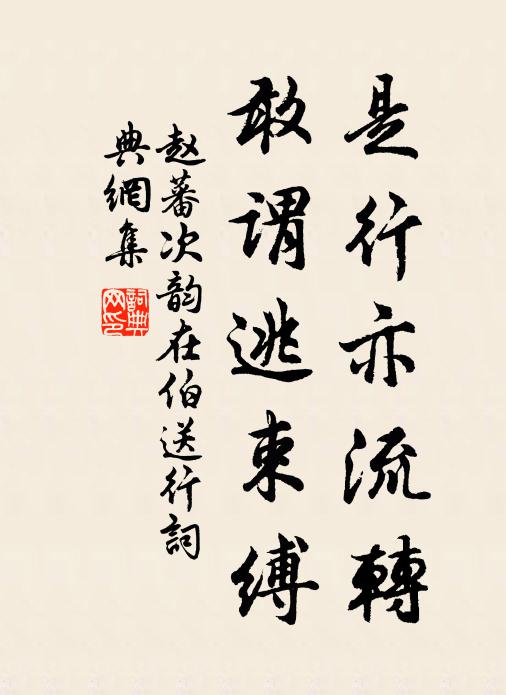 是行亦流轉
敢谓逃束缚
赵蕃次韵在伯送行詞
典網集
詞典网印